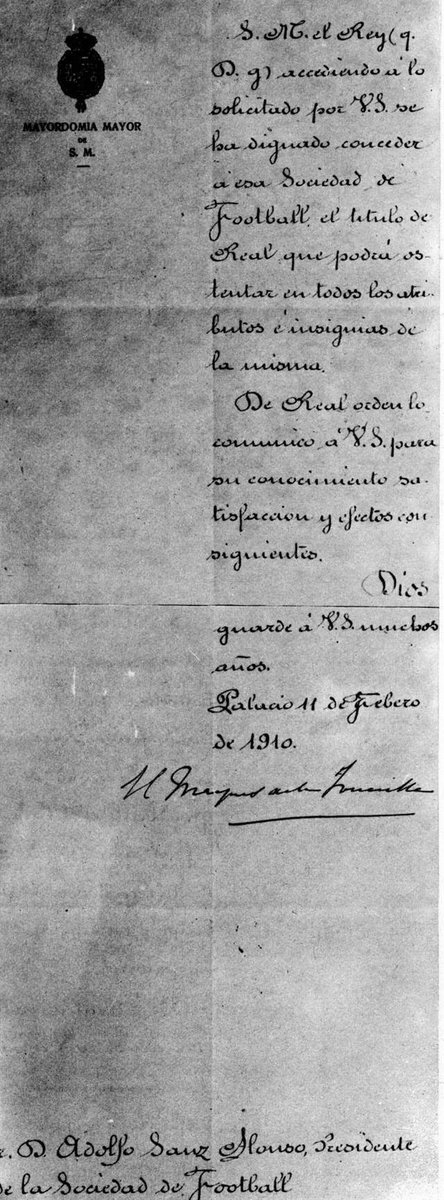 MAYORDOMIA MAYOR
DE
S. M.
S. M. el Rey (q.
D. g) accediendo á lo
solicitado por V.S. se
ha dignado conceder
á esa Sociedad de
Football, el titulo de
Real que podrá os-
tentar en todos los atri-
butos é insignias de
la misma.
De Real orden lo
comunico á V.S. para
su conocimiento sa-
tisfaccion y efectos con
siguientes.
Dios
guarde á V.S. muchos
años.
Palacio 11 de Febero
de 1910.
El Marques de la
D. Adolfo Sanz Alonso, Presidente
de la Sociedad de Football